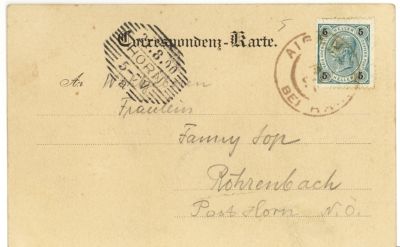 Correspondenz-Karte.
5 5
5 5
HORN
5-
BEI
An
Fräulein
Fanny Sop
Röhrenbach
Post Horn N. Ö.